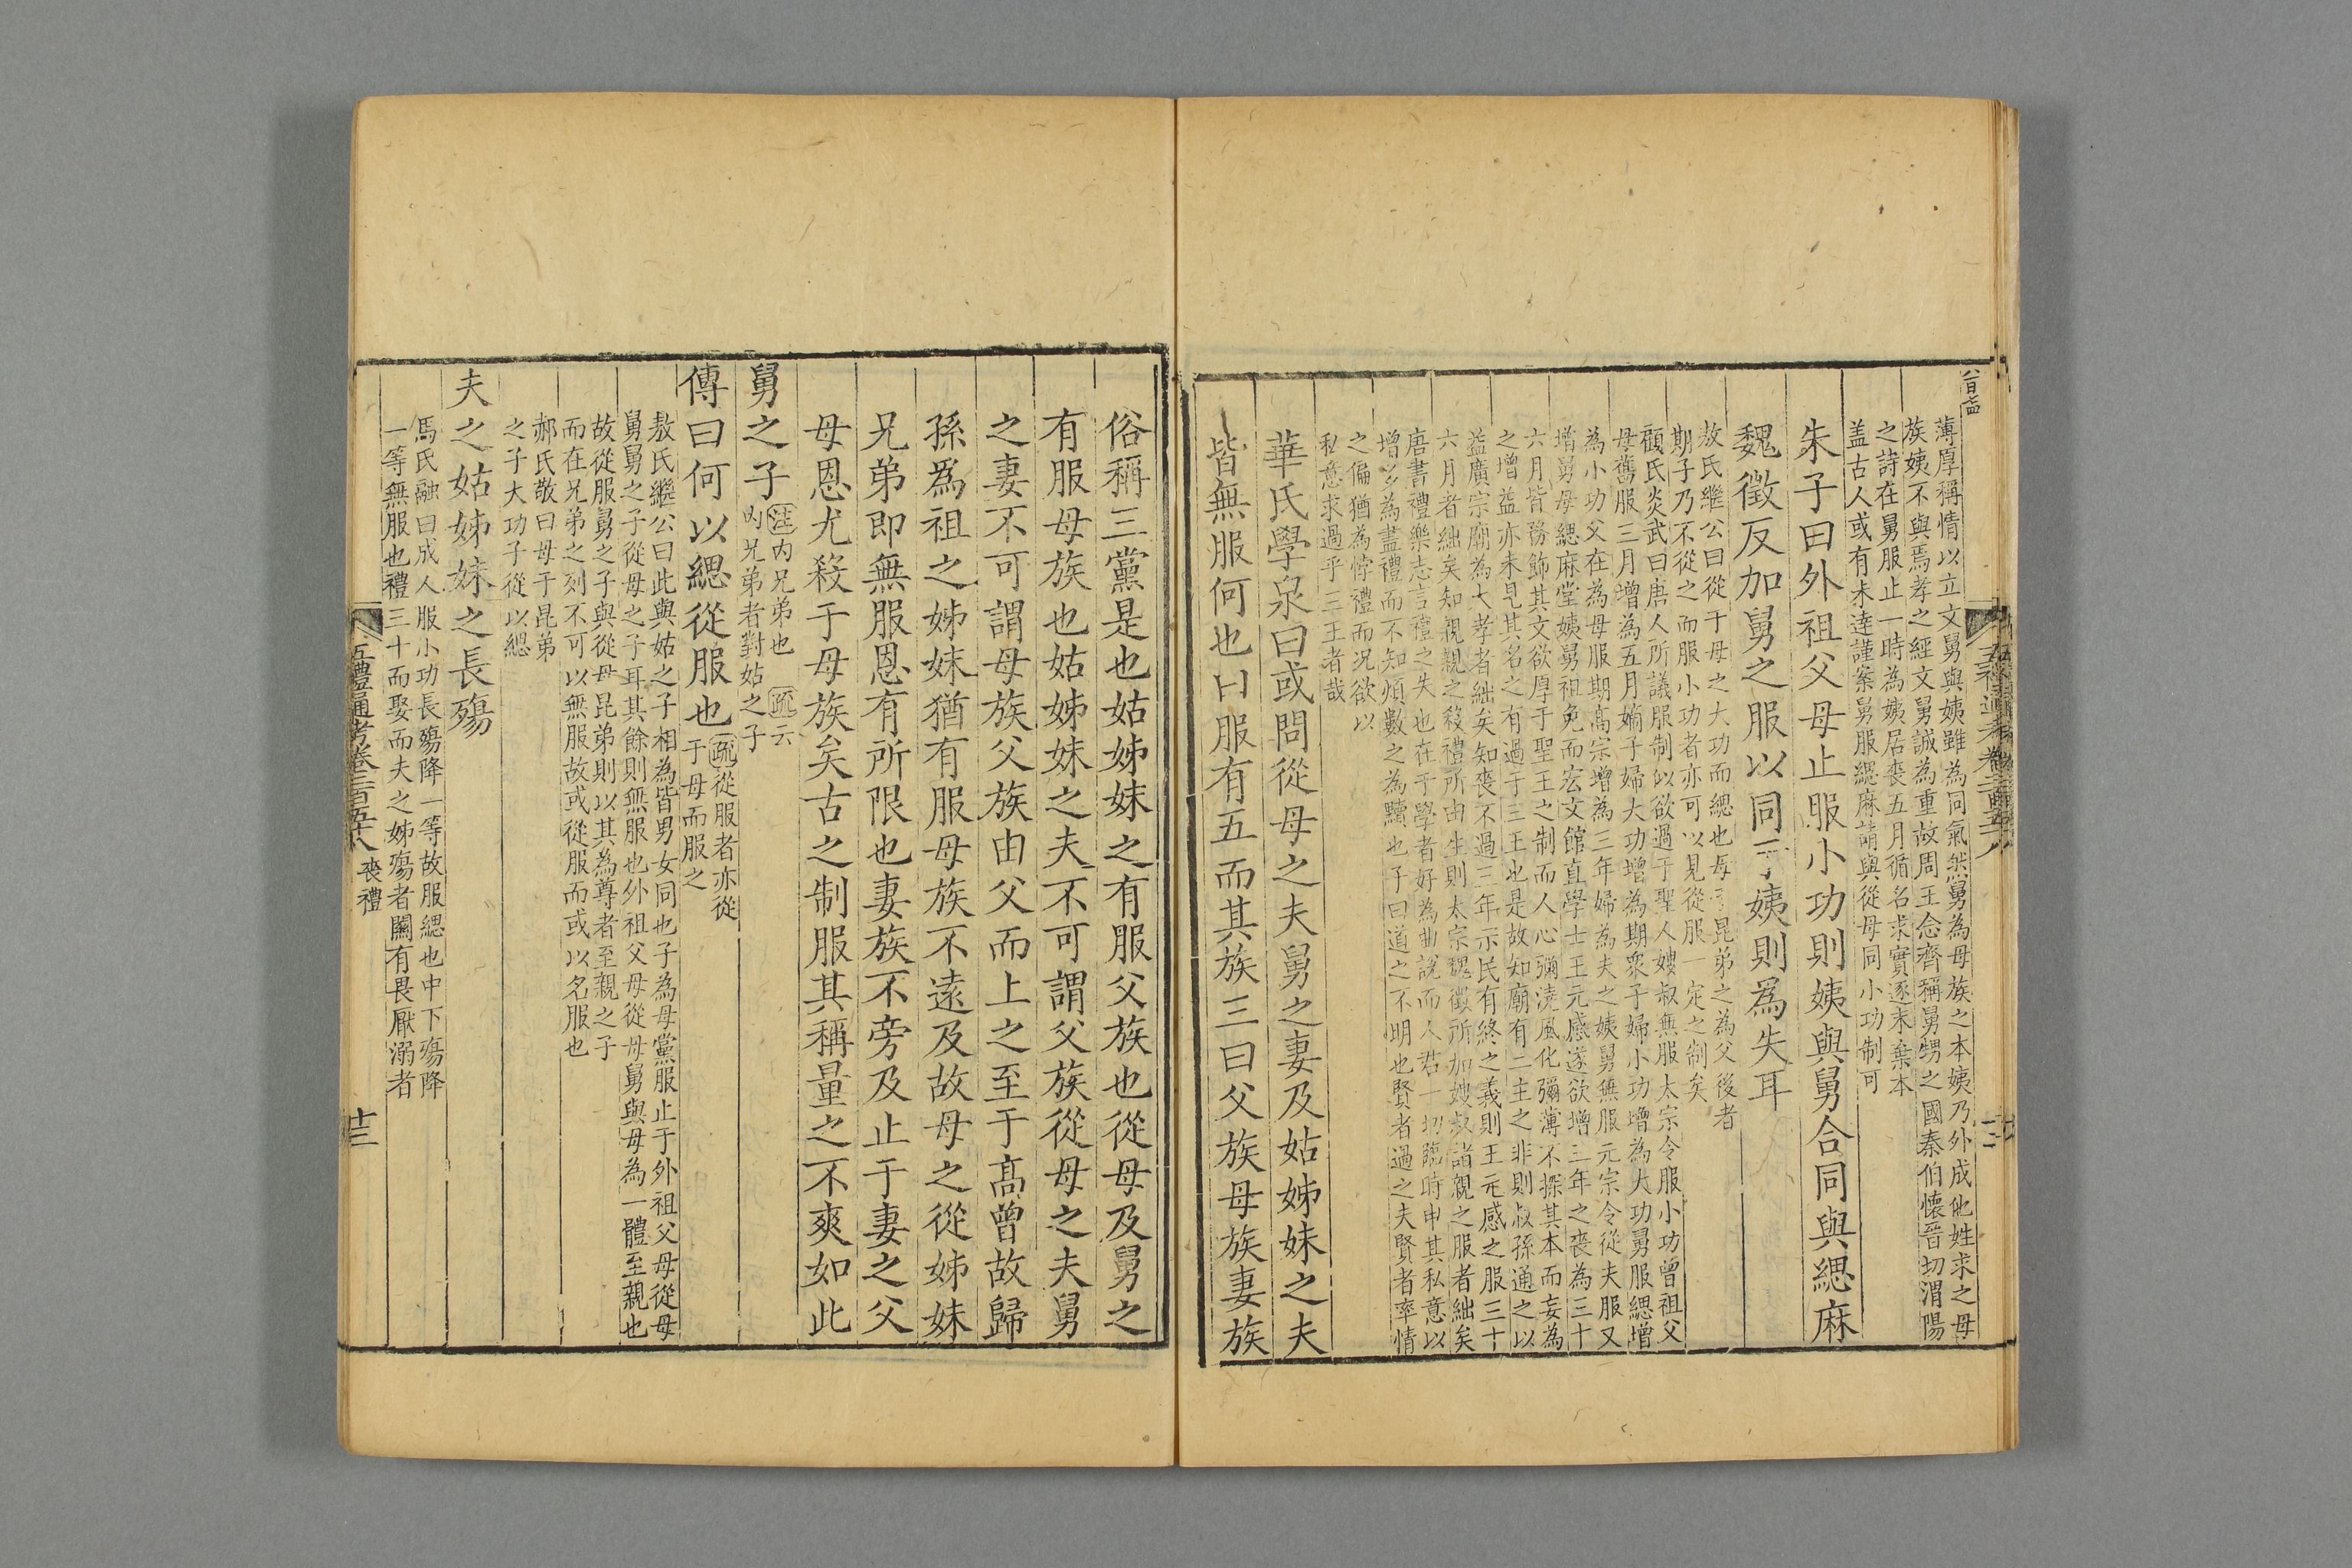 薄厚稱情以立文舅與姨雖為同氣然舅為母族之本姨乃外成他姓求之母
族姨不與焉孝之經文舅誠為重故周王念齊稱舅甥之國秦伯懷晉切渭陽
之詩在舅服止一時為姨居喪五月循名求實逐末棄本
盖古人或有未達謹案舅服緦麻請與從母同小功制可
朱子曰外祖父母止服小功則姨與舅合同與緦麻
魏徵反加舅之服以同于姨則為失耳
敖氏繼公曰從于母之大功而緦也母于昆弟之為父後者
期子乃不從之而服小功者亦可以見從服一定之制矣
顧氏炎武曰唐人所議服制似欲過于聖人嫂叔無服太宗令服小功曾祖父
母舊服三月增為五月嫡子婦大功增為期衆子婦小功增為大功舅服緦增
為小功父在為母服期高宗增為三年婦為夫之姨舅無服元宗令從夫服又
增舅母緦麻堂姨舅袒免而宏文館直學士王元感遂欲增三年之喪為三十
六月皆務飾其文欲厚于聖王之制而人心彌澆風化彌薄不探其本而妄為
之增益亦未見其名之有過于三王也是故知廟有二主之非則叔孫通之以
益廣宗廟為大孝者絀矣知喪不過三年示民有終之義則王元感之服三十
六月者絀矣知親親之殺禮所由生則太宗魏徵所加嫂叔諸親之服者絀矣
唐書禮樂志言禮之失也在于學者好為曲說而人君一切臨時申其私意以
增多為盡禮而不知煩數之為黷也子曰道之不明也賢者過之夫賢者率情
之偏猶為悖禮而况欲以
私意求過乎三王者哉
華氏學泉曰或問從母之夫舅之妻及姑姊妹之夫
皆無服何也曰服有五而其族三曰父族母族妻族
俗稱三黨是也姑姊妹之有服父族也從母及舅之
有服母族也姑姊妹之夫不可謂父族從母之夫舅
之妻不可謂母族父族由父而上之至于高曾故歸
孫爲祖之姊妹猶有服母族不遠及故母之從姊妹
兄弟即無服恩有所限也妻族不旁及止于妻之父
母恩尤殺于母族矣古之制服其稱量之不爽如此
舅之子注内兄弟也疏云
内兄弟者對姑之子
傳曰何以緦從服也疏從服者亦從
于母而服之
敖氏繼公曰此與姑之子相為皆男女同也子為母黨服止于外祖父母從母
舅舅之子從母之子耳其餘則無服也外祖父母從母舅與母為一體至親也
故從服舅之子與從母昆弟則以其為尊者至親之子
而在兄弟之列不可以無服故或從服而或以名服也
郝氏敬曰母于昆弟
之子大功子從以緦
夫之姑姊妹之長殤
馬氏融曰成人服小功長殤降一等故服緦也中下殤降
一等無服也禮三十而娶而夫之姊殤者關有畏厭溺者
五禮通考卷二百五十八 喪禮
十三